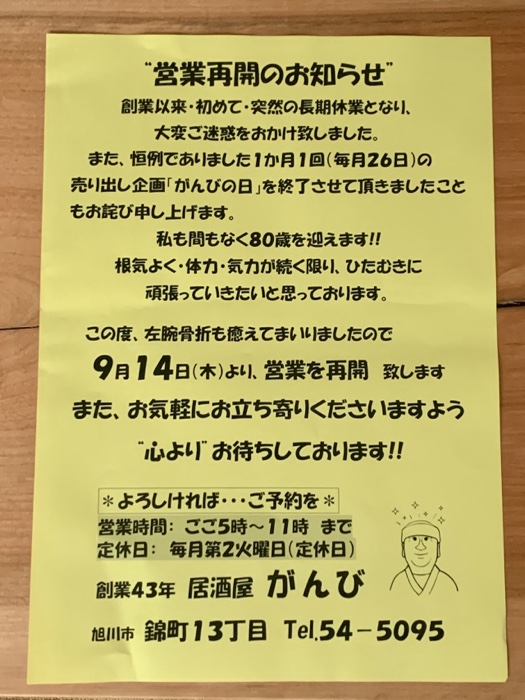 "営業再開のお知らせ"
創業以来・初めて・突然の長期休業となり、
大変ご迷惑をおかけ致しました。
また、恒例でありました1か月1回(毎月26日)の
売り出し企画「がんびの日」を終了させて頂きましたこと
もお詫び申し上げます。
私も間もなく80歳を迎えます!!
根気よく・体力・気力が続く限り、ひたむきに
頑張っていきたいと思っております。
この度、左腕骨折も癒えてまいりましたので
9月14日(木)より、営業を再開 致します
また、お気軽にお立ち寄りくださいますよう
"心より"お待ちしております!!
*よろしければ・・・ご予約を*
営業時間: ごご5時~11時 まで
定休日: 毎月第2火曜日(定休日)
創業43年 居酒屋 がんび
旭川市 錦町13丁目 Tel.54-5095